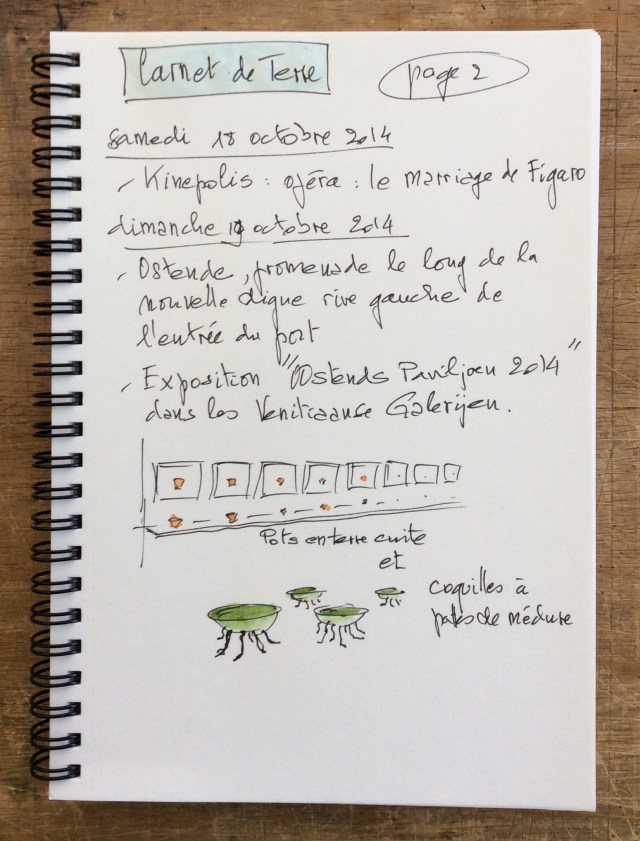 Carnet de Terre
page 2
samedi 18 octobre 2014
- Kinepolis : opéra : le marriage de Figaro
dimanche 19 octobre 2014
- Ostende, promenade le long de la
nouvelle digue rive gauche de
l'entrée du port
- Exposition "Ostends Paviljoen 2014"
dans les Venitiaanse Galerijen.
Pots en terre cuite
et
coquilles à
pattes de méduse